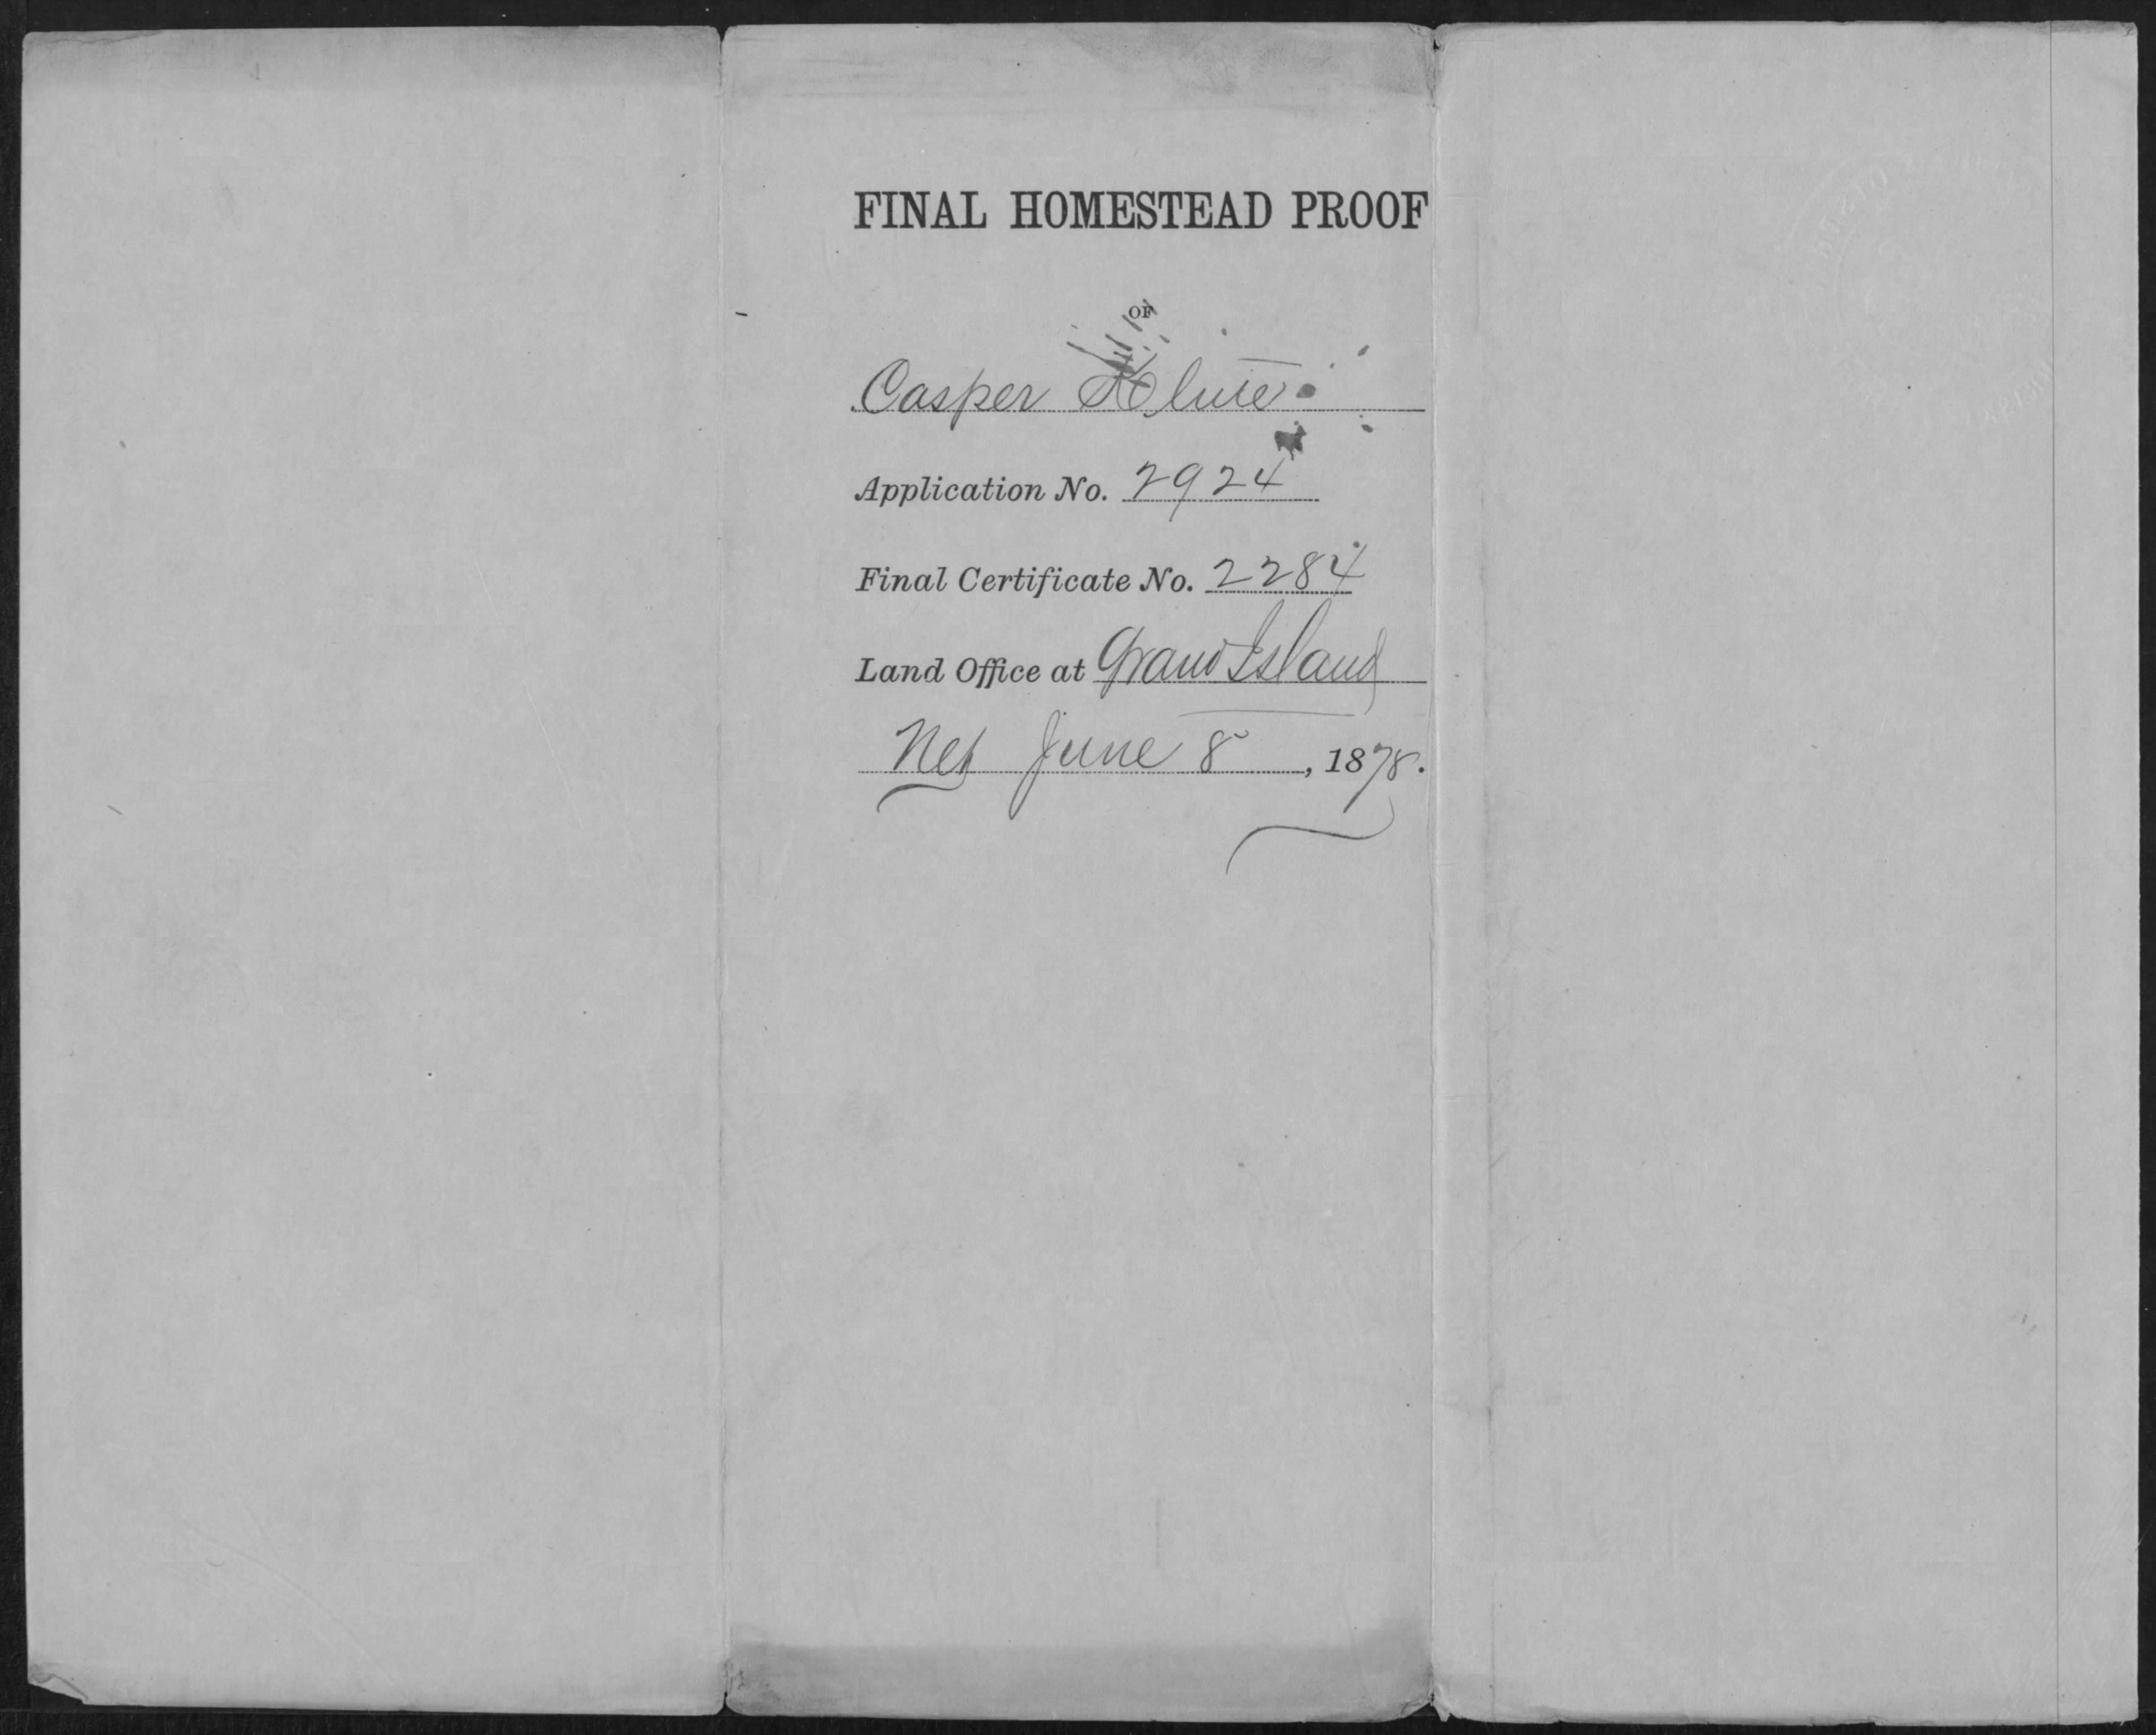 FINAL HOMESTEAD PROOF
OF
Casper Klute
Application No. 2924
Final Certificate No. 2284
Land Office at Grand Island
Neb June 8, 1878.